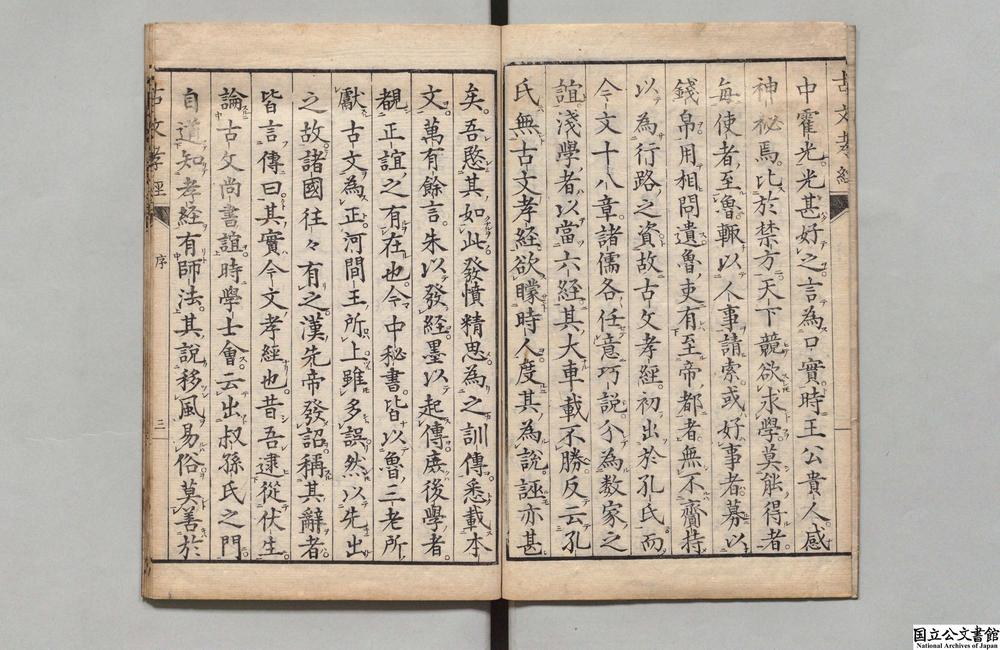 古文孝經
中霍光光甚好之言為口實時王公貴人感
神祕焉比於禁方天下競欲求學莫能得者
每使者至魯輒以人事請索或好事者募以
錢帛用相問遺魯吏有至帝都者無不齎持
以為行路之資故古文孝經初出於孔氏而
今文十八章諸儒各任意巧說分為數家之
誼淺學者以當六經其大車載不勝反云孔
氏無古文孝經欲矇時人度其為說誣亦甚
矣吾愍其如此發憤精思為之訓傳悉載本
文萬有餘言朱以發經墨以起傳庶後學者
覩正誼之有在也今中秘書皆以魯三老所
獻古文為正河間王所上雖多誤然以先出
之故諸國往々有之漢先帝發詔稱其辭者
皆言傳曰其實今文孝經也昔吾逮從伏生
論古文尚書誼時學士會云出叔孫氏之門
自道知孝經有師法其說移風易俗莫善於
古文孝經
序
三
国立公文書館
National Archives of Japan